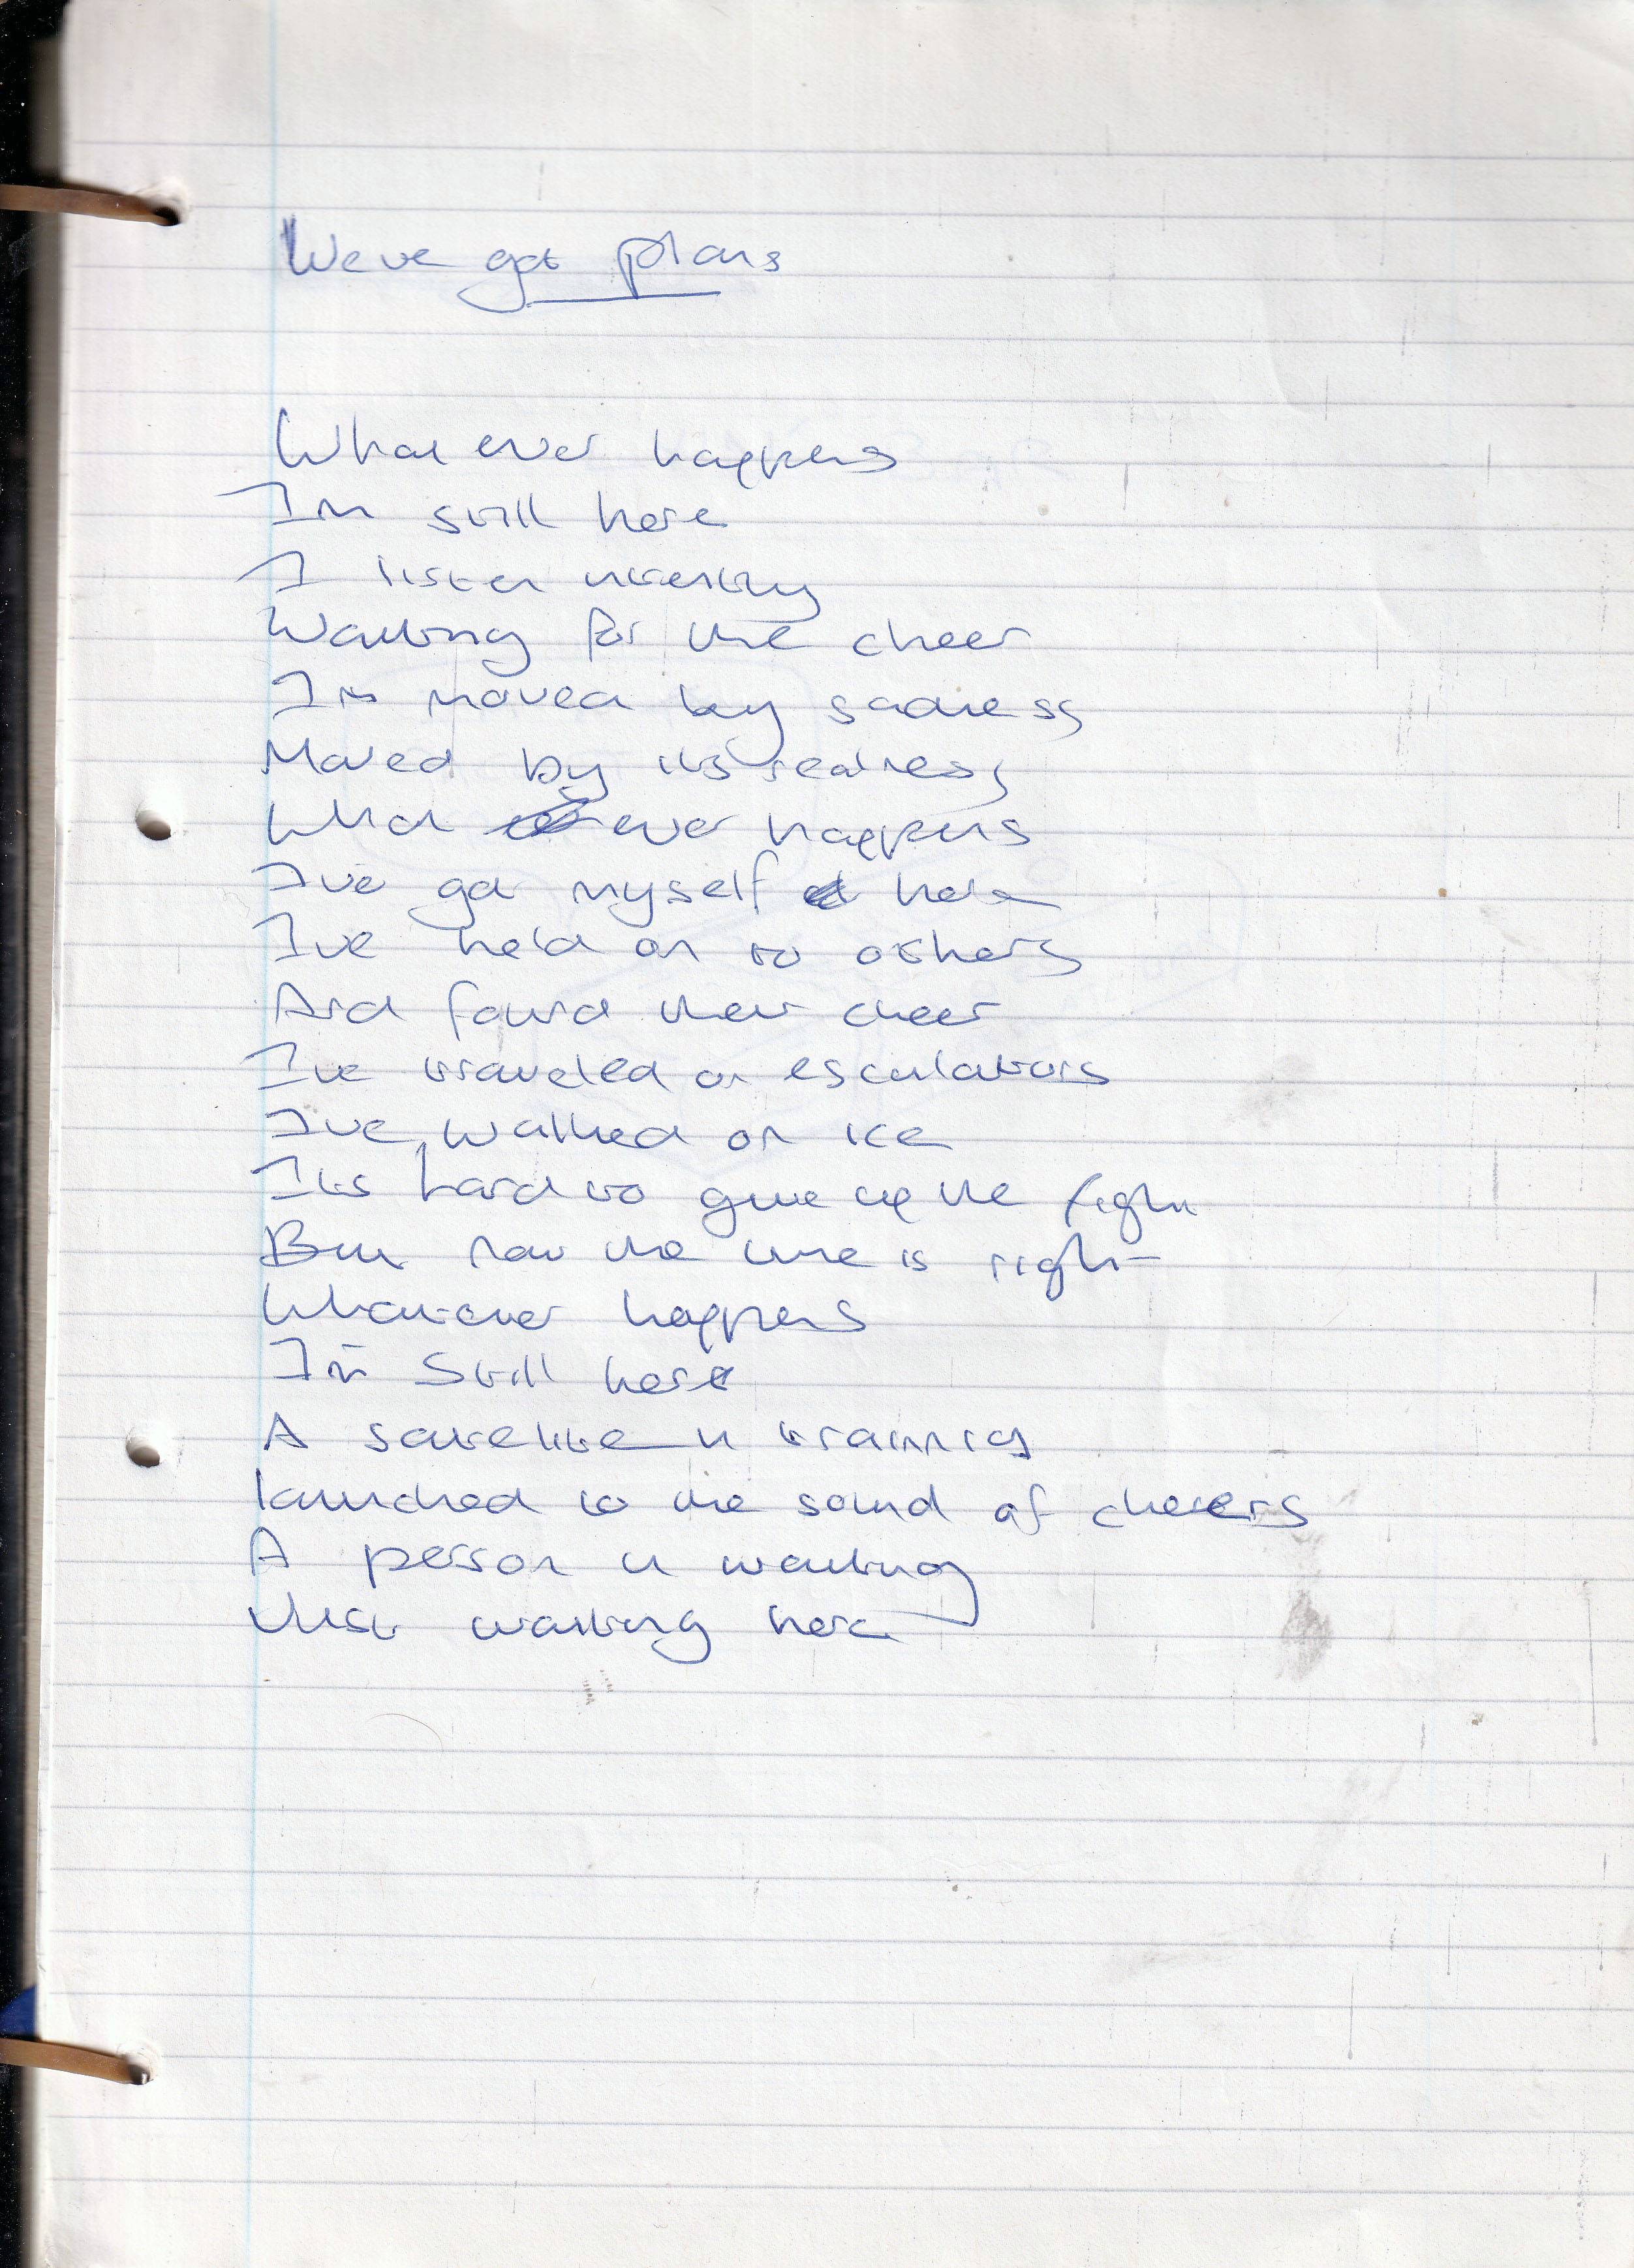 We've got plans
What ever happens
Im still here
I listen intently
Waiting for the cheer
Im moved by sadness
Moved by its realness
What ever happens
I've got myself here
I've held on to others
And found their cheer
I've traveled on esculators
I've walked on ice
Its hard to give up the fight
But now the time is right
Whatever happens
I'm still here
A satelite in training
launched to the sound of cheers
A person in waiting
Just waiting here